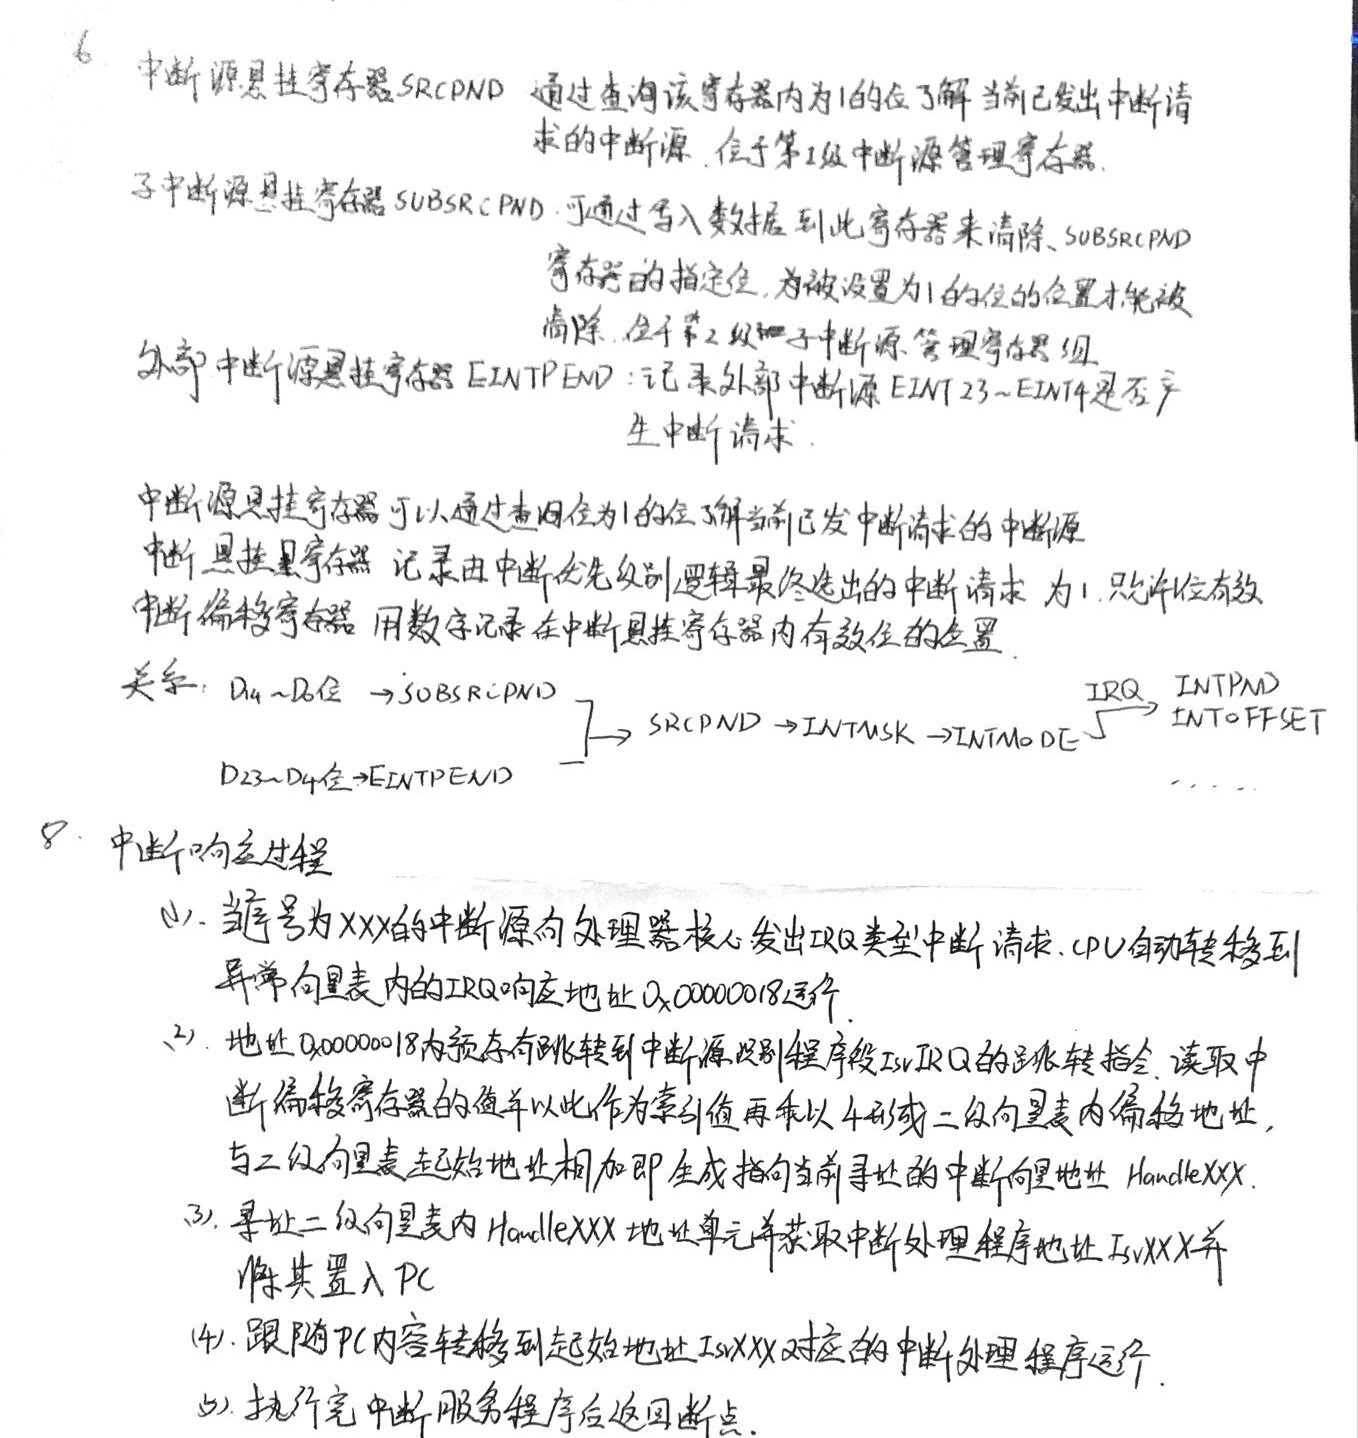 6
中断源悬挂寄存器SRCPND 通过查询该寄存器内为1的位了解当前已发出中断请
求的中断源.位于第1级中断源管理寄存器.
子中断源悬挂寄存器SUBSRCPND.可通过写入数据到此寄存器来清除、SUBSRCPND
寄存器的指定位,为被设置为1的位的位置才能被
清除.位于第2级子中断源管理寄存器组
外部中断源悬挂寄存器EINTPEND:记录外部中断源EINT23~EINT4是否产
生中断请求.
中断源悬挂寄存器可以通过查询位为1的位了解当前已发中断请求的中断源
中断悬挂寄存器 记录由中断优先级别逻辑最终选出的中断请求 为1.只允许1位有效
中断偏移寄存器 用数字记录在中断悬挂寄存器内有效位的位置.
关系: D14~D0位 →SUBSRCPND
D23~D4位→EINTPEND
SRCPND →INTMSK →INTMODE IRQ INTPND
INTOFFSET
.....
8. 中断响应过程
(1).当序号为XXX的中断源向处理器核心发出IRQ类型中断请求.CPU自动转移到
异常向量表内的IRQ响应地址0x00000018运行.
(2).地址0x00000018内预存有跳转到中断源识别程序段IsrIRQ的跳转指令.读取中
断偏移寄存器的值并以此作为索引值再乘以4形成二级向量表内偏移地址,
与二级向量表起始地址相加即生成指向当前寻址的中断向量地址 HandleXXX.
(3).寻址二级向量表内HandleXXX地址单元并获取中断处理程序地址IsrXXX并
将其置入PC
(4).跟随PC内容转移到起始地址IsrXXX对应的中断处理程序运行.
(5).执行完中断服务程序后返回断点.